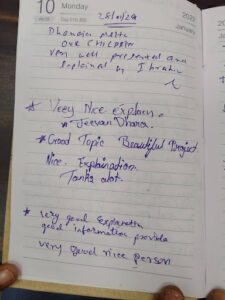 10 Monday
2022
January
25/01/24
Dhamdia Mehta
OUR CHILDREN
very well presented and
explained by Ibrahi
* Veey Nice explain.
* Jeevan Dhara.
* Good Topic Beautiful Project
Nice. Explaination.
Tanks alot.
* very good Explanation
good information provide
very good nice person